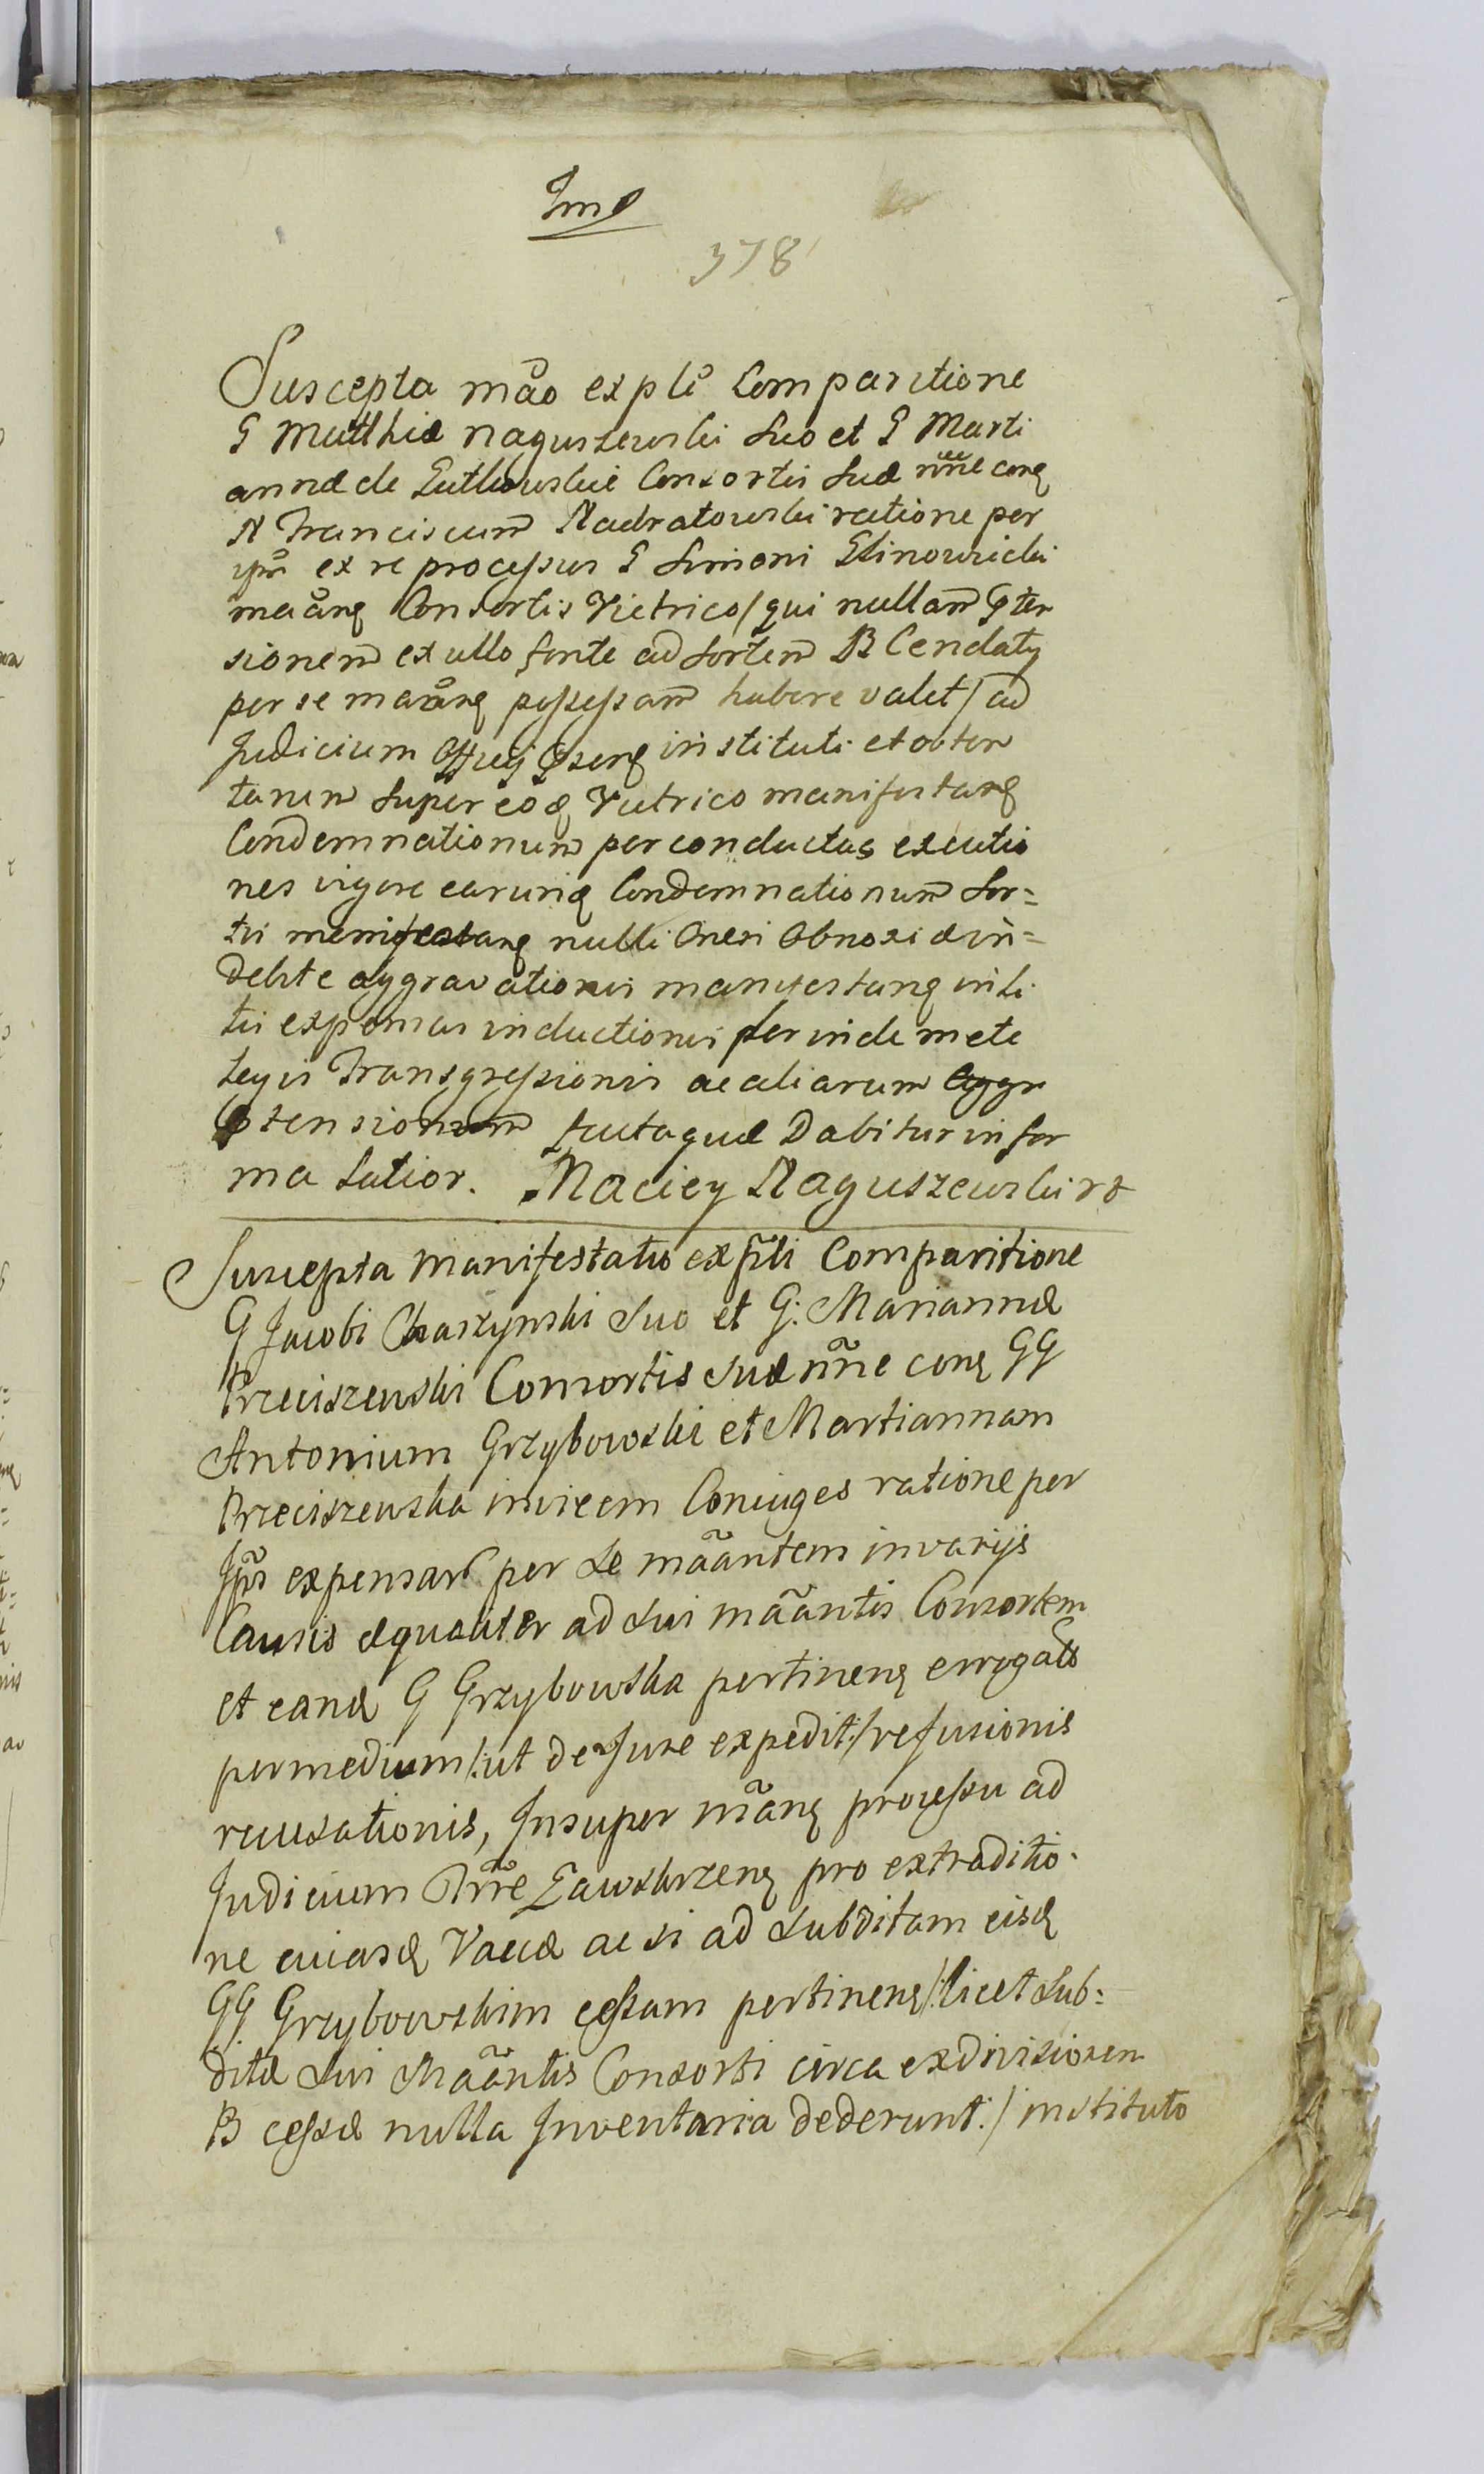 Imo
378
Suscepta mão ex pli Comparitione
G Matthiæ Naguszewski suo et G Marti
annæ de Gutkowskie Consortis suæ nñe conq
N Franciscum Nadratowski ratione per
ipm ex re processus G Simoni Glinowiecki
maãnq Consortis Vietrico/qui nullam Pten
sionem ex ullo fonte ad sortem B Cendaty
per se maãnq possessam habere valet/ad
Judicium Offury Psenq instituti et obten
tarum super eoq Victrico manifestanq
Condemnationum per conductas executio
nes vigore earunq Condemnationum sor=
tis manifestanq nulli Oneri Obnoxiæ in=
debite aggravationis manifestanq in li
tis expensas inductionis per inde mete
legis Transgressionis ac aliarum
Ptensionum juxta quæ Dabitur in for
ma latior. Maciey Naguszewski
Suscepta Manifestatio ex pñli Comparitione
G Jacobi Chaszynski suo et G: Mariannæ
Przeciszewski Consortis suæ nñe conq GG
Antonium Grzybowski et Martiannam
Przeciszewska invicem Coniuges ratione per
Ipõs expensar per se mãantem in varijs
Causis æqualiter ad sui mãantis Consortem
et eand G Grzybowska pertinenq errogats
per medium/:ut de Jure expedit:/refusionis
recusationis, Insuper mãnq processu ad
Judicium Trre Zawskrzenq pro extraditio=
ne cuiusd Vaccæ ac si ad subditam eisd
GG Grzybowskim cessam pertinenq/:licet sub=
ditæ sui Mãantis Consorti circa exdivisionem
B cessæ nulla Inventaria dederunt:/instituto